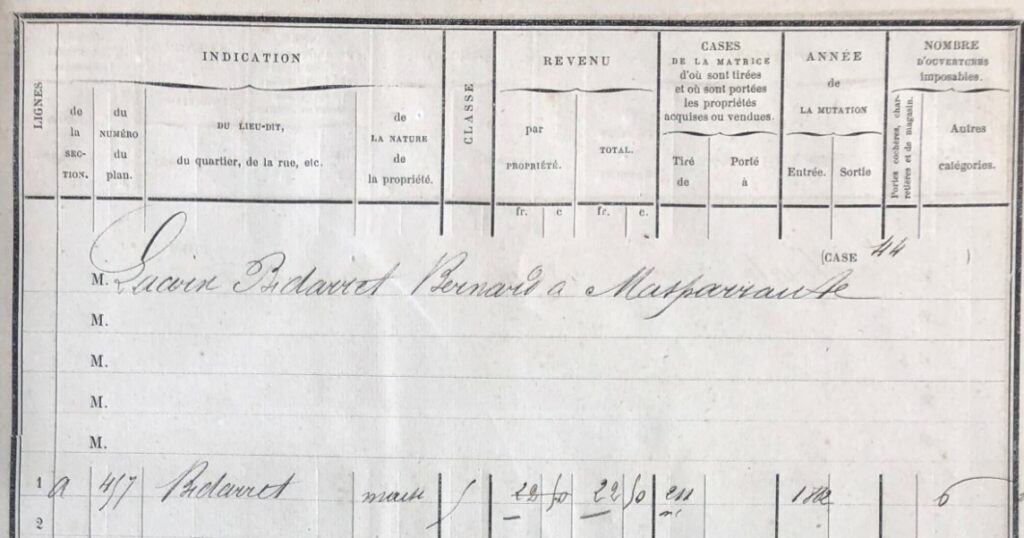 LIGNES
INDICATION
de la SEC- TION.
du NUMÉRO du plan.
DU LIEU-DIT, du quartier, de la rue, etc.
de LA NATURE de la propriété.
CLASSE
REVENU
par PROPRIÉTÉ.
TOTAL.
fr. c fr. c.
CASES
DE LA MATRICE
d'où sont tirées
et où sont portées
les propriétés
acquises ou vendues.
Tiré de
Porté à
ANNÉE
de
LA MUTATION
Entrée. Sortie
NOMBRE
D'OUVERTURES
imposables.
Portes cochères, char-
retières et de magasin.
Autres catégories.
(CASE 44 )
M. Bidarret Bernard à Masparraute
M.
M.
M.
M.
1 a 457 Bidarret 5 22 50 22 50 6
2